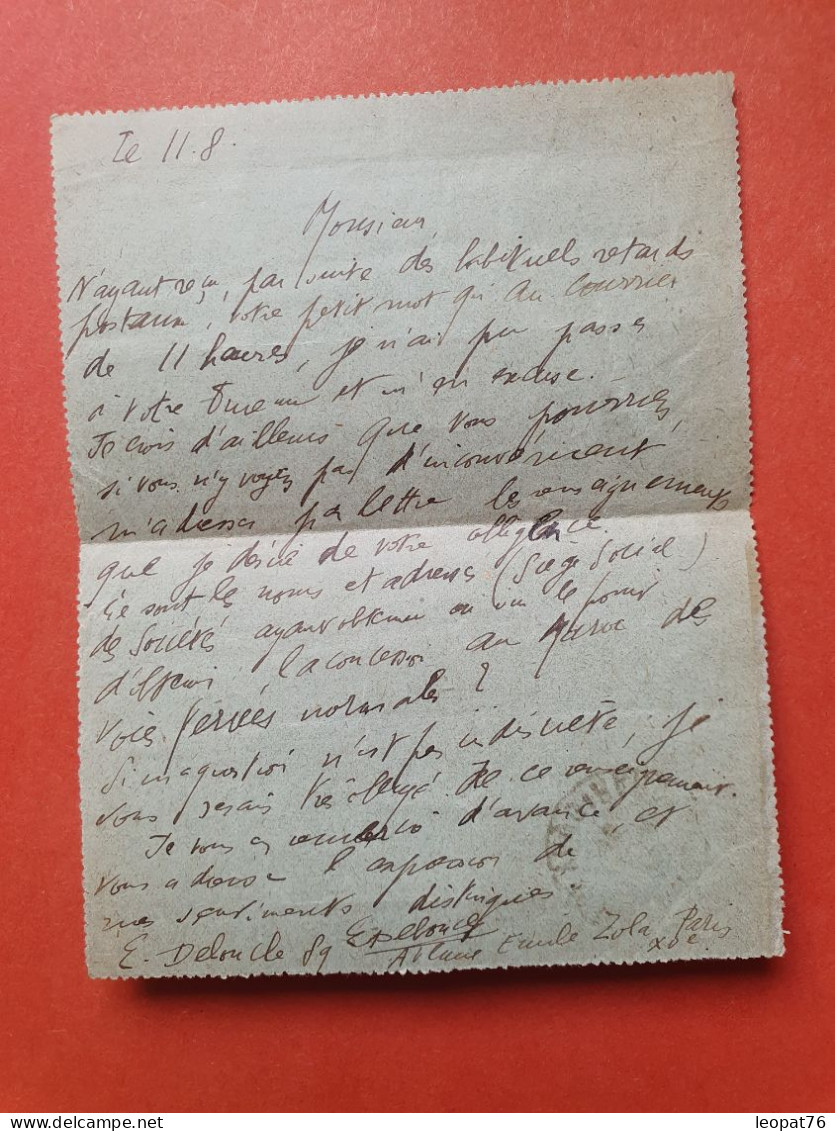 Le 11.8.
Monsieur,
N'ayant reçu, par suite des habituels retards
postaux, votre petit mot qu'au courrier
de 11 heures, je n'ai pu passer
à votre bureau et m'en excuse.
Je crois d'ailleurs que vous pourriez,
si vous n'y voyez pas d'inconvénient
m'adresser par lettre les renseignements
que je désire de votre obligeance.
Ce sont les noms et adresses (Siège Social)
des Sociétés ayant obtenu ou en
d'obtenir la concession au Maroc des
voies ferrées normales ?
Si ma question n'est pas indiscrète, je
vous serais très obligé de ce renseignement.
Je vous en remercie d'avance, et
vous adresse l'expression de
mes sentiments distingués.
EDeloncle
E. Deloncle 89 Avenue Emile Zola, Paris
XVe.
leopat76